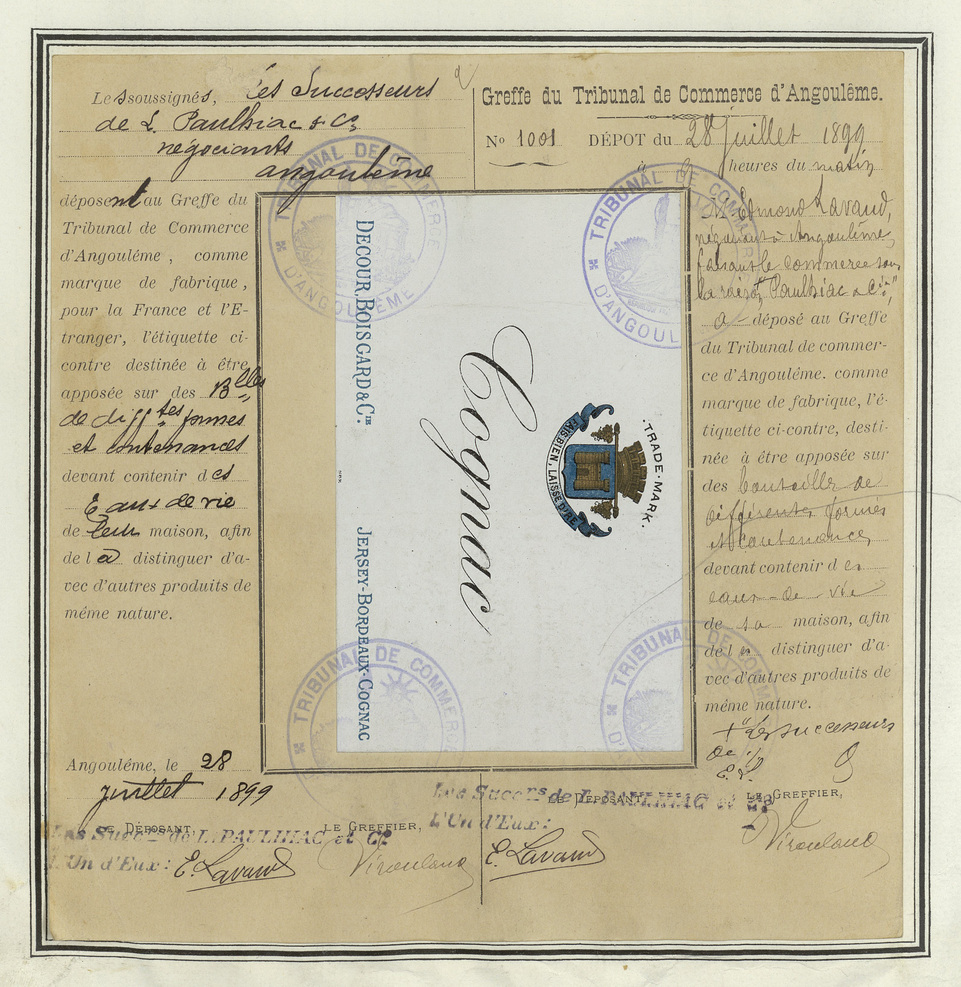 Les soussignés, les Successeurs
de L. Paulhiac & Cie
négociants
angoulême
déposent au Greffe du
Tribunal de Commerce
d'Angouléme, comme
marque de fabrique,
pour la France et l'E-
tranger, l'étiquette ci-
contre destinée à être
apposée sur des Blles
de difftes formes
et contenances
devant contenir des
Eaux de vie
de leur maison, afin
de la distinguer d'a-
vec d'autres produits de
méme nature.
Angouléme, le 28
juillet 1899
LE DÉPOSANT,
LE GREFFIER,
Les Succrs de L. PAULHIAC et Cie
L'Un d'Eux:
E. Lavaud
Viroulaud
Greffe du Tribunal de Commerce d'Angoulême.
No 1001 DÉPOT du 28 juillet 1899
à 9 heures du matin
M. Edmond Lavaud,
négociant à Angoulême,
faisant le commerce sous
la raison "Paulhiac & Cie"
a déposé au Greffe
du Tribunal de commer-
ce d'Angouléme. comme
marque de fabrique, l'é-
tiquette ci-contre, desti-
née à être apposée sur
des bouteilles de
différentes formes
et contenances
devant contenir des
eaux-de-vie
de sa maison, afin
de la distinguer d'a-
vec d'autres produits de
méme nature.
+ "les successeurs
de
E. L.
LE DÉPOSANT,
LE GREFFIER,
Les Succrs de L. PAULHIAC et Cie
L'Un d'Eux:
E. Lavaud
Viroulaud
DECOUR, BOISGARD & CIE.
JERSEY-BORDEAUX-COGNAC
Cognac
.TRADE-MARK.
FAIS BIEN, LAISSE DIRE
TRIBUNAL DE COMMERCE
D'ANGOULEME
TRIBUNAL DE COMMERCE
D'ANGOUL
TRIBUNAL DE COMMERCE
TRIBUNAL DE COMMERCE